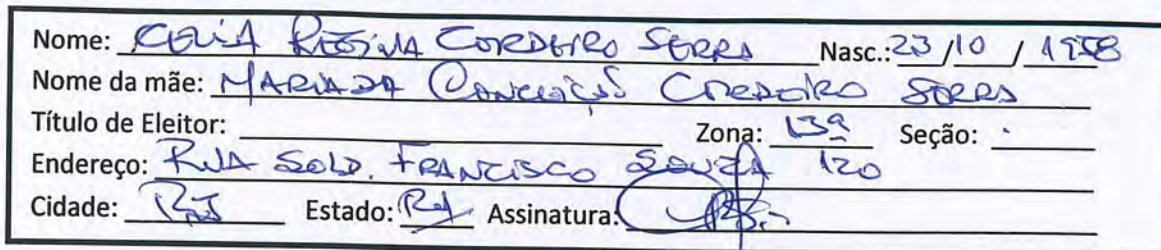 Nome: CELIA REGINA CORDEIRO SERRA Nasc.: 23/10/1958
Nome da mãe: MARIA DA CONCEIÇÃO CORDEIRO SERRA
Título de Eleitor: Zona: 139 Seção:
Endereço: RUA SOLD. FRANCISCO SOUZA 120
Cidade: RJ Estado: RJ Assinatura: